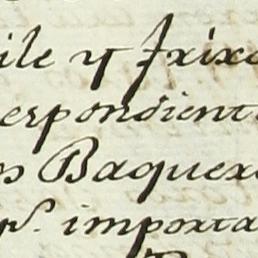 ile y Trixo
espondient
os Baquexo
p.r importa